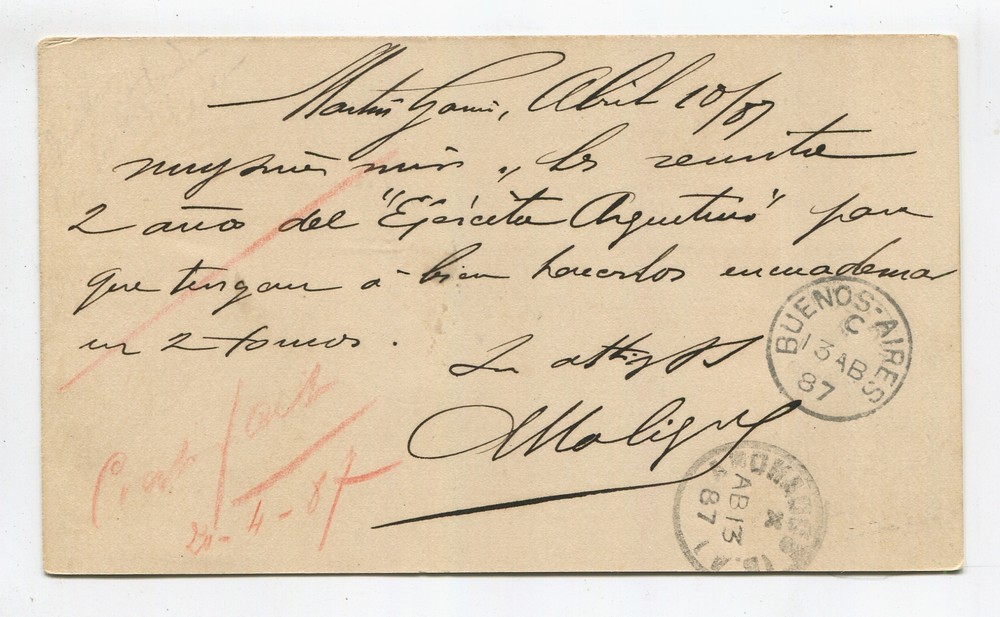 Martín García, Abril 10/87
muy sres míos, les remito
2 años del "Ejército Argentino" para
que tengan á bien hacerlos encuadernar
en 2 tomos.
Su att
BUENOS-AIRES
C
13 AB
87
AB 13
87
20-4-87